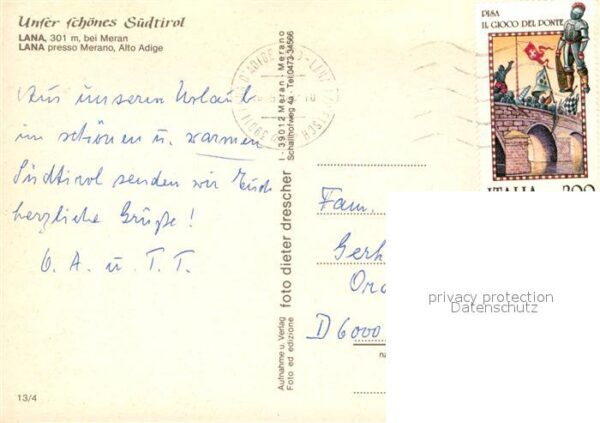 Unser schönes Südtirol
LANA, 301 m, bei Meran
LANA presso Merano, Alto Adige
Aus unserem Urlaub
im schönen u. warmen
Südtirol senden wir Euch
herzliche Grüße!
O. A. u. T. T.
13/4
Aufnahme u. Verlag
Foto ed edizione
foto dieter drescher
I - 39012 Meran - Merano
Schallhofweg 4a - Tel. 0473-34566
39011
PISA
IL GIOCO DEL PONTE
ITALIA 200
Fam.
Gerh
D 6000
privacy protection
Datenschutz